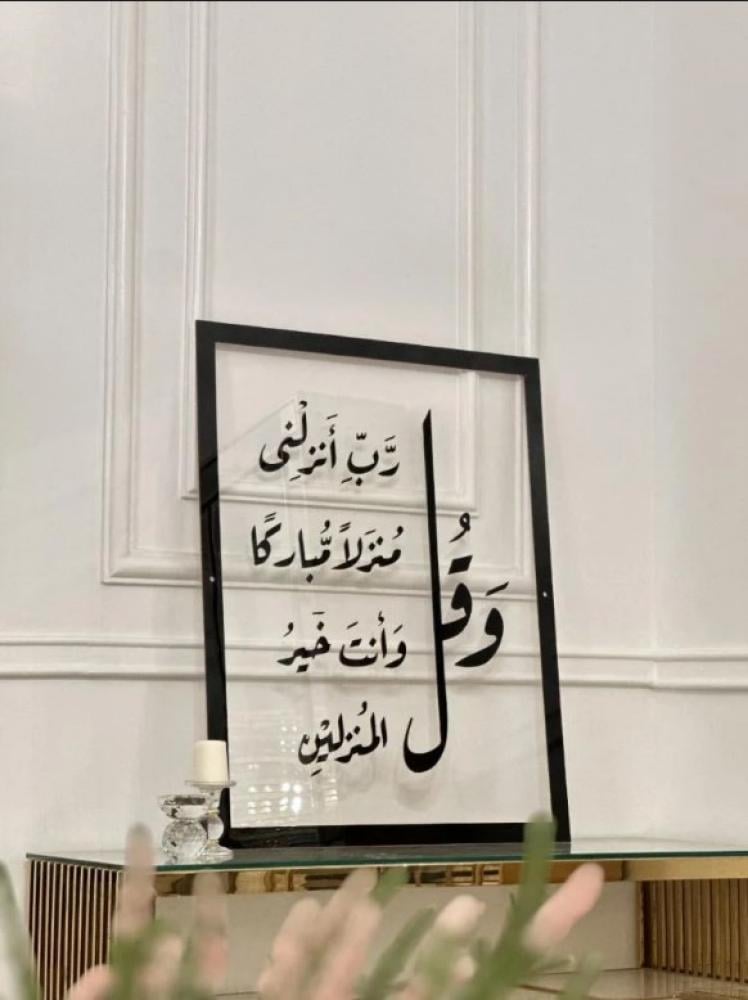 وَقُل
رَّبِّ أَنزِلْنِى
مُنزَلاً مُّبَارَكًا
وَأَنتَ خَيرُ
المُنزِليْنِ